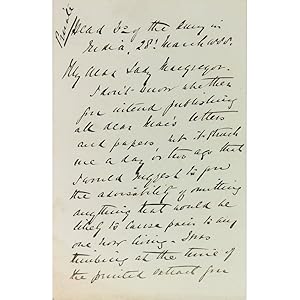 Private
Head Qrs of the Army in
India, 28th March 1888.
My dear Lady Macgregor.
I don't know whether
you intend publishing
all dear Mac's letters
and papers, but it struck
me a day or two ago that
I would suggest to you
the advisability of omitting
anything that would be
likely to cause pain to any
one now living. I was
thinking at the time of
the printed extract you